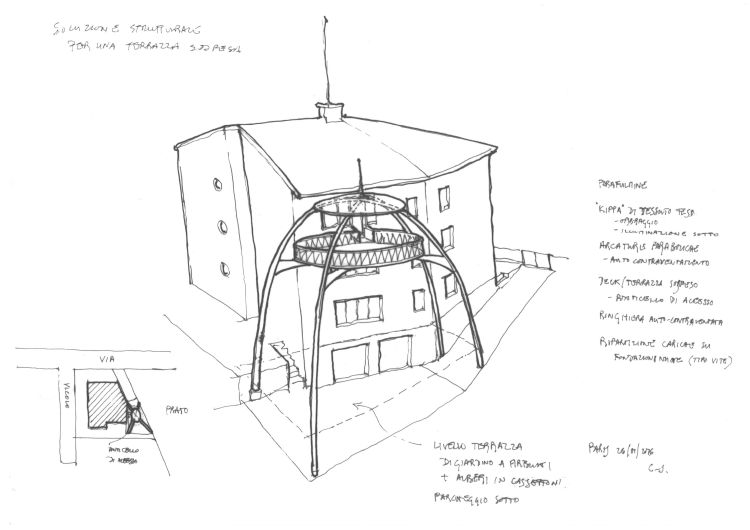 SOLUZIONE STRUTTURALE
PER UNA TERRAZZA SOSPESA
PARAFULMINE
"KIPPA" DI TESSUTO TESO
- OMBRAGGIO
- ILLUMINAZIONE SOTTO
ARCATURES PARABOLICHE
- AUTO CONTRAVENTAMENTO
DECK/TERRAZZA SOSPESO
- PONTICELLO DI ACCESSO
RINGHIERA AUTO-CONTRAVENTATA
RIPARTIZIONE CARICHI SU
FONDAZIONI (TIPO VITE)
VIA
VICOLO
PRATO
PONTICELLO
DI ACCESSO
LIVELLO TERRAZZA
DI GIARDINO A
+ ALBERI IN CASSETTONI
PARCHEGGIO SOTTO
PARIS
C-S.